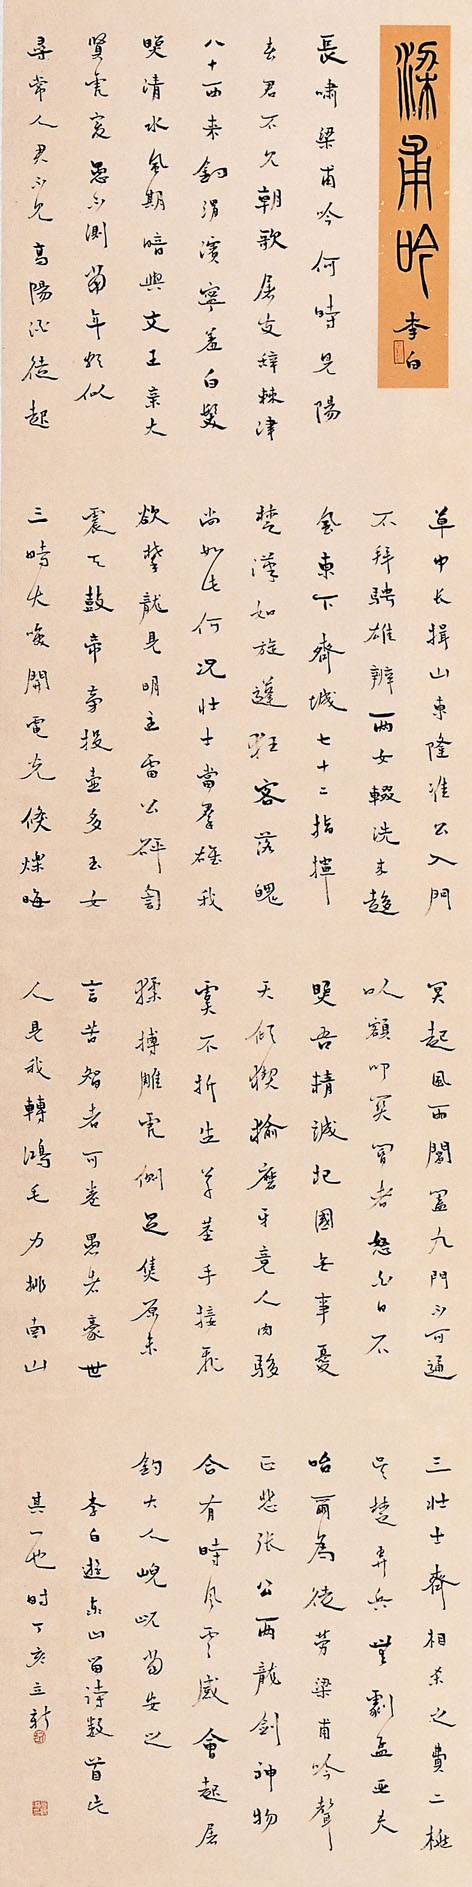 梁甫吟
李白
長嘯梁甫吟何時見陽
春君不見朝歌屠叟辭棘津
八十西來釣渭濱寧羞白髮
暎清水風期暗與文王親大
賢虎變愚不測當年頗似
尋常人君不見高陽酒徒起
草中長揖山東隆准公入門
不拜騁雄辯兩女輟洗來趨
風東下齊城七十二指揮
楚漢如旋蓬狂客落魄
尚如此何況壯士當羣雄我
欲攀龍見明主雷公砰訇
震天鼓帝旁投壺多玉女
三時大笑開電光倏爍晦
冥起風雨閶闔九門不可通
以額叩関閽者怒白日不
暎吾精誠杞國無事憂
天傾猰貐磨牙競人肉騶
虞不折生草莖手接飛
猱搏雕虎側足焦原未
言苦智者可卷愚者豪世
人見我輕鴻毛力排南山
三壯士齊相殺之費二桃
吳楚弄兵無劇孟亞夫
咍爾為徒勞梁甫吟聲
正悲張公兩龍劍神物
合有時風雲感會起屠
釣大人峴屼當安之
李白遊泰山留詩數首此
其一也時丁亥立新